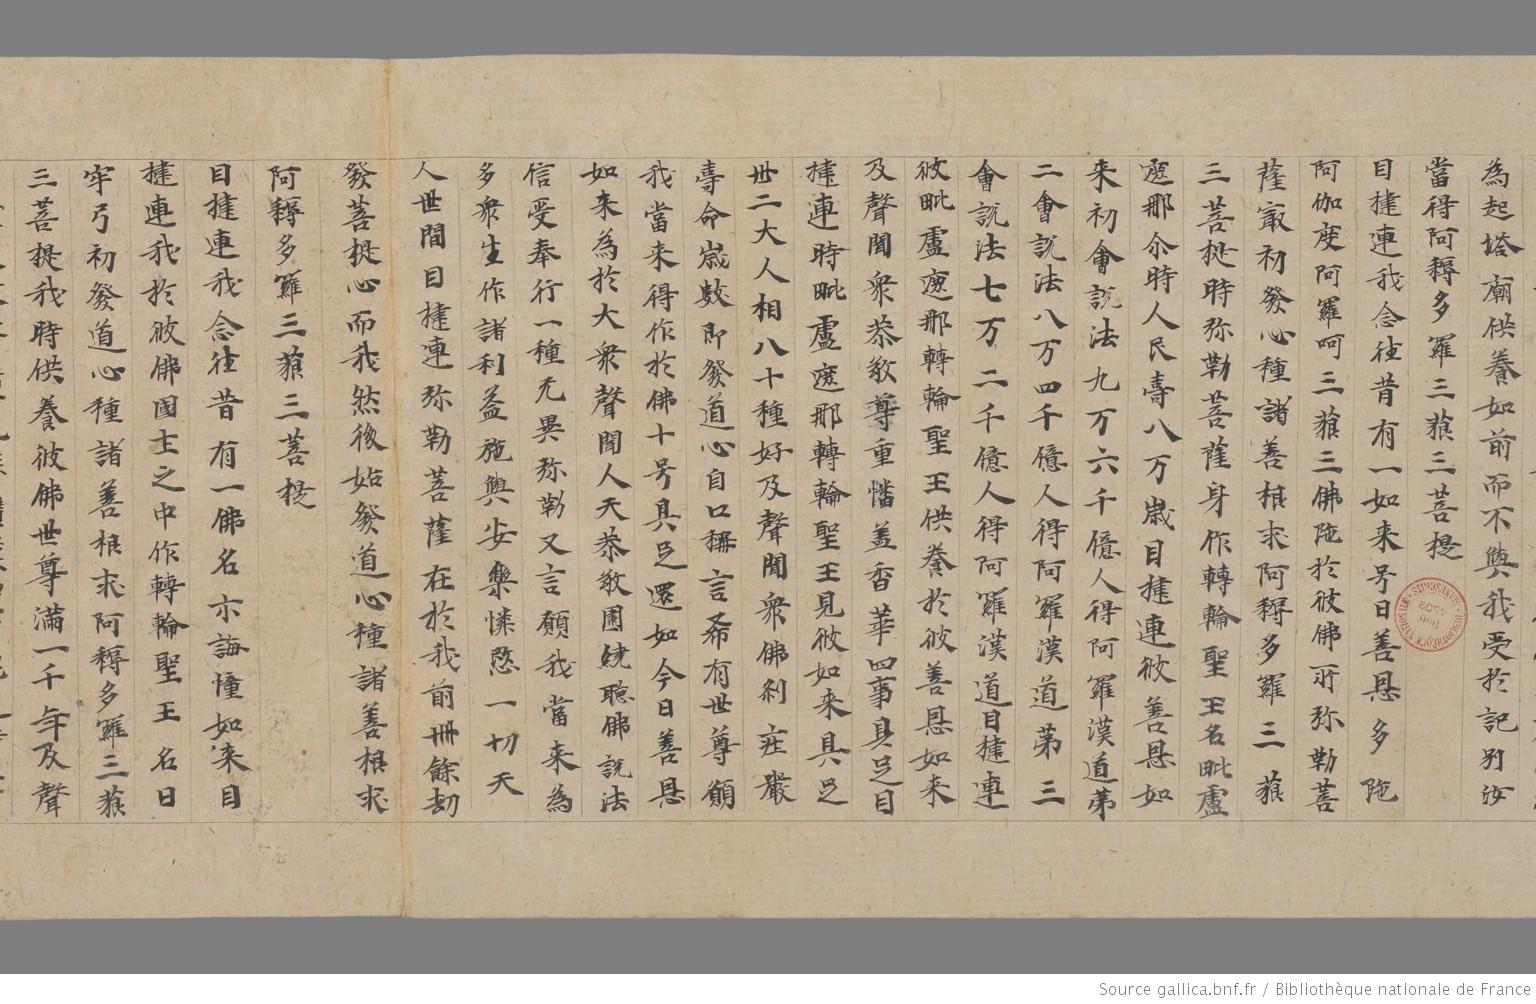 為起塔廟供養如前而不與我受於記別汝
當得阿耨多羅三藐三菩提
目揵連我念往昔有一如來号曰善思多陁
阿伽度阿羅呵三藐三佛陁於彼佛所弥勒菩
薩寂初發心種諸善根求阿耨多羅三藐
三菩提時弥勒菩薩身作轉輪聖王名毗盧
遮那尒時人民壽八万歲目揵連彼善思如
來初會說法九万六千億人得阿羅漢道第
二會說法八万四千億人得阿羅漢道第三
會說法七万二千億人得阿羅漢道目揵連
彼毗盧遮那轉輪聖王供養於彼善思如来
及聲聞衆恭敬尊重幡盖香華四事具足目
揵連時毗盧遮那轉輪聖王見彼如来具足
卅二大人相八十種好及聲聞衆佛剎莊嚴
壽命歲數即發道心自口稱言希有世尊願
我當来得作於佛十号具足還如今日善思
如来為於大衆聲聞人天恭敬圍繞聽佛說法
信受奉行一種无異弥勒又言願我當来為
多衆生作諸利益施與安樂憐愍一切天
人世間目揵連弥勒菩薩在於我前卌餘劫
發菩提心而我然後始發道心種諸善根求
阿耨多羅三藐三菩提
目揵連我念往昔有一佛名示誨幢如来目
揵連我於彼佛國土之中作轉輪聖王名曰
牢弓初發道心種諸善根求阿耨多羅三藐
三菩提我時供養彼佛世尊滿一千年及聲
Source gallica.bnf.fr / Bibliothèque nationale de France